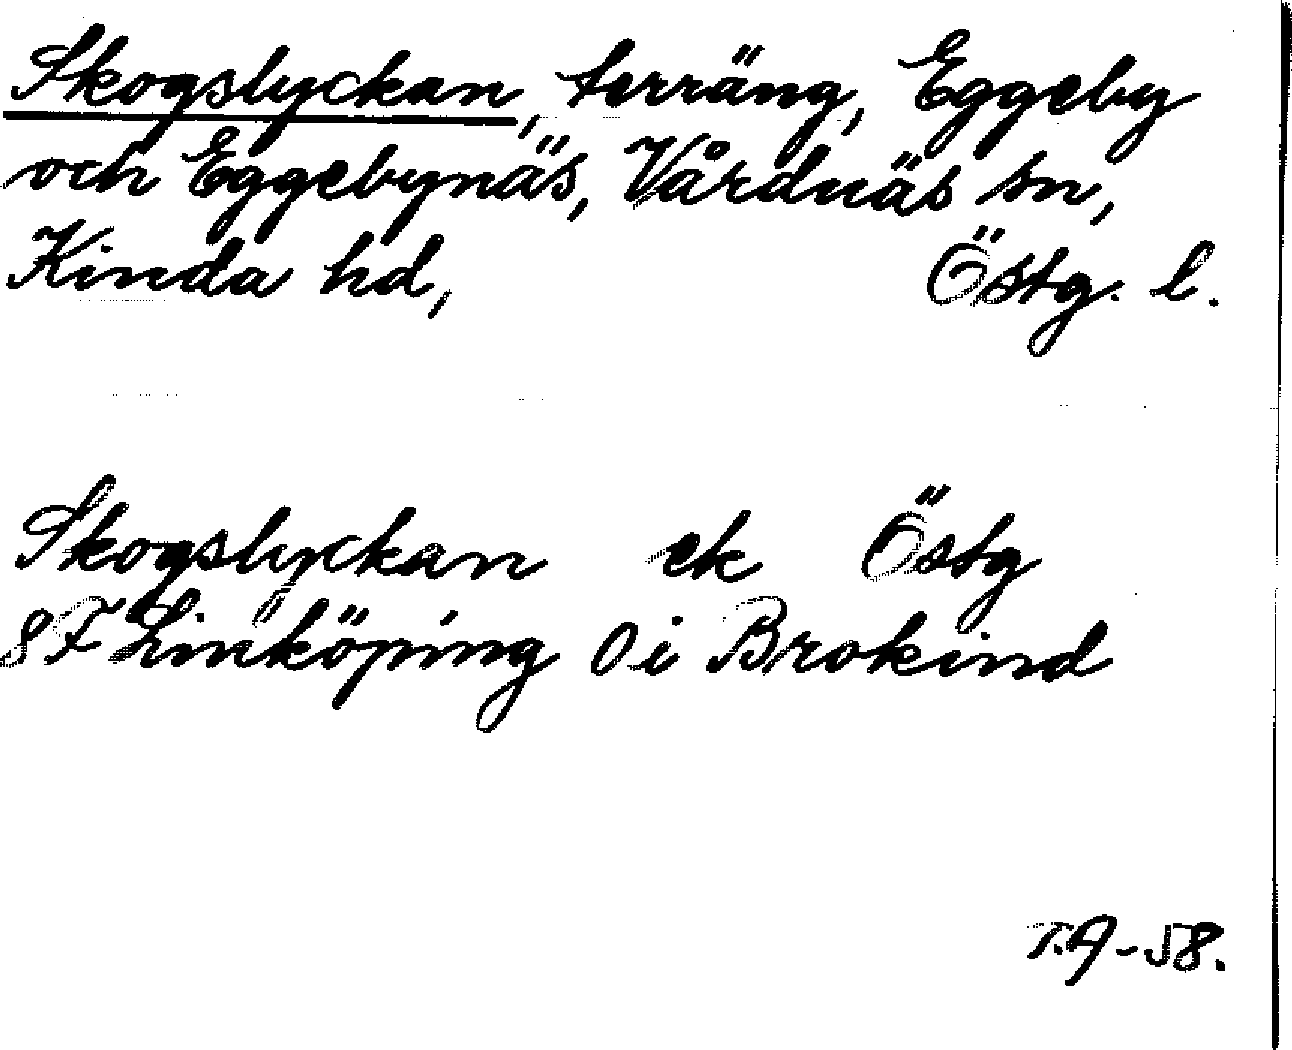 Skogslyckan, terräng, Eggeby
och Eggebynäs, Vårdnäs sn,
Kinda hd, Östg. l.
Skogslyckan ek Östg
8F Linköping 0 i Brokind
T.A-58.